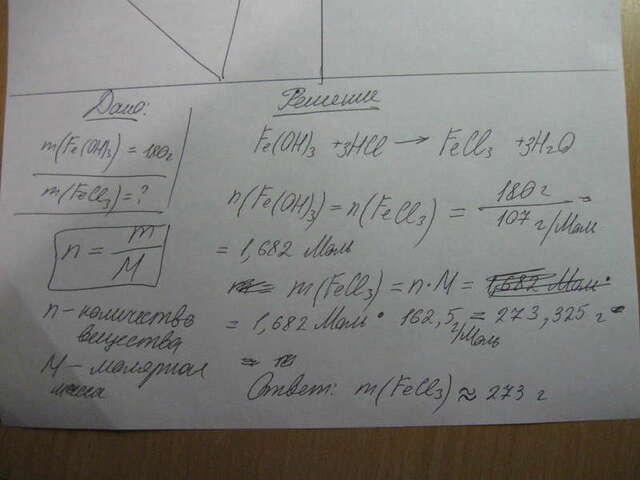 Дано:
m(Fe(OH)₃) = 180г
m(FeCl₃) = ?
n = m/M
n - количество
вещества
M - молярная
масса
Решение
Fe(OH)₃ + 3HCl → FeCl₃ + 3H₂O
n(Fe(OH)₃) = n(FeCl₃) = 180 г / 107 г/Моль =
= 1,682 Моль
m(FeCl₃) = n·M = 1,682 Моль·
= 1,682 Моль · 162,5 г/Моль = 273,325 г
Ответ: m(FeCl₃) ≈ 273 г